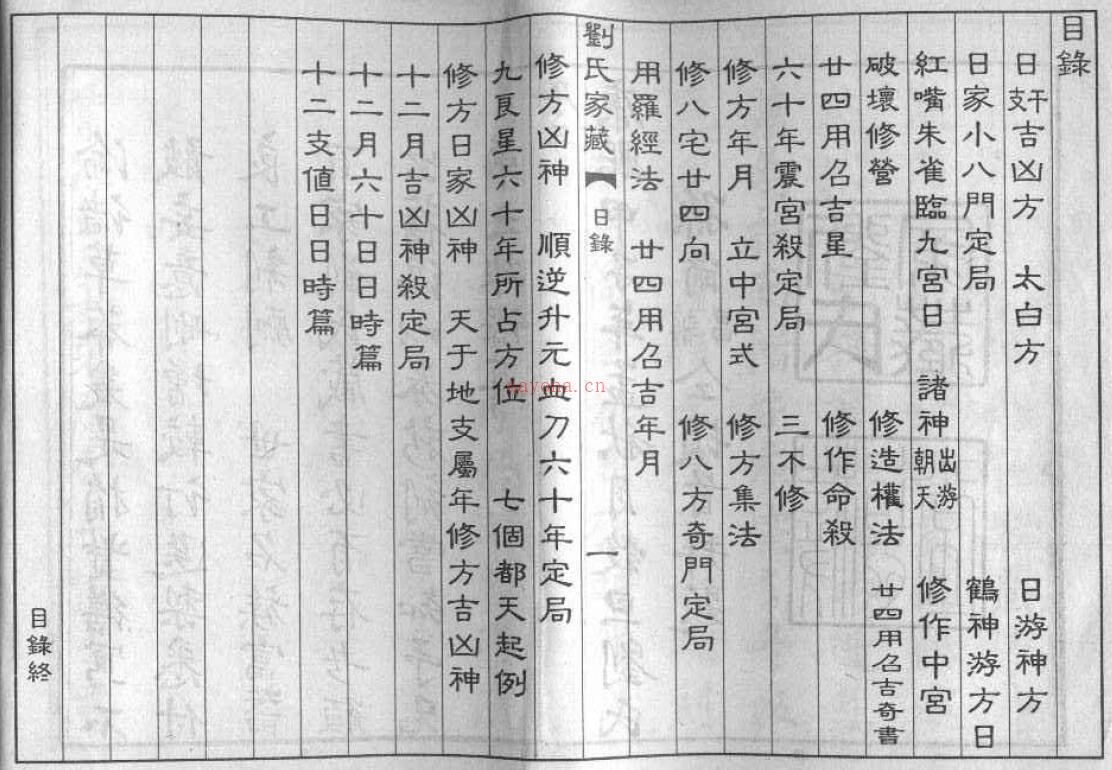 目錄
日干支吉凶方 太白方 日游神方
日家小八門定局 鶴神游方日
紅嘴朱雀臨九宮日 諸神出游朝天 修作中宮
破壞修營 修造權法 廿四用召吉奇書
廿四用召吉星 修作命殺
六十年震宮殺定局 三不修
修方年月 立中宮式 修方集法
修八宅廿四向 修八方奇門定局
用羅經法 廿四用召吉年月
劉氏家藏 目錄 一
修方凶神 順逆升元血刀六十年定局
九良星六十年所占方位 七個都天起例
修方日家凶神 天于地支屬年修方吉凶神
十二月吉凶神殺定局
十二月六十日日時篇
十二支値日日時篇
目錄終